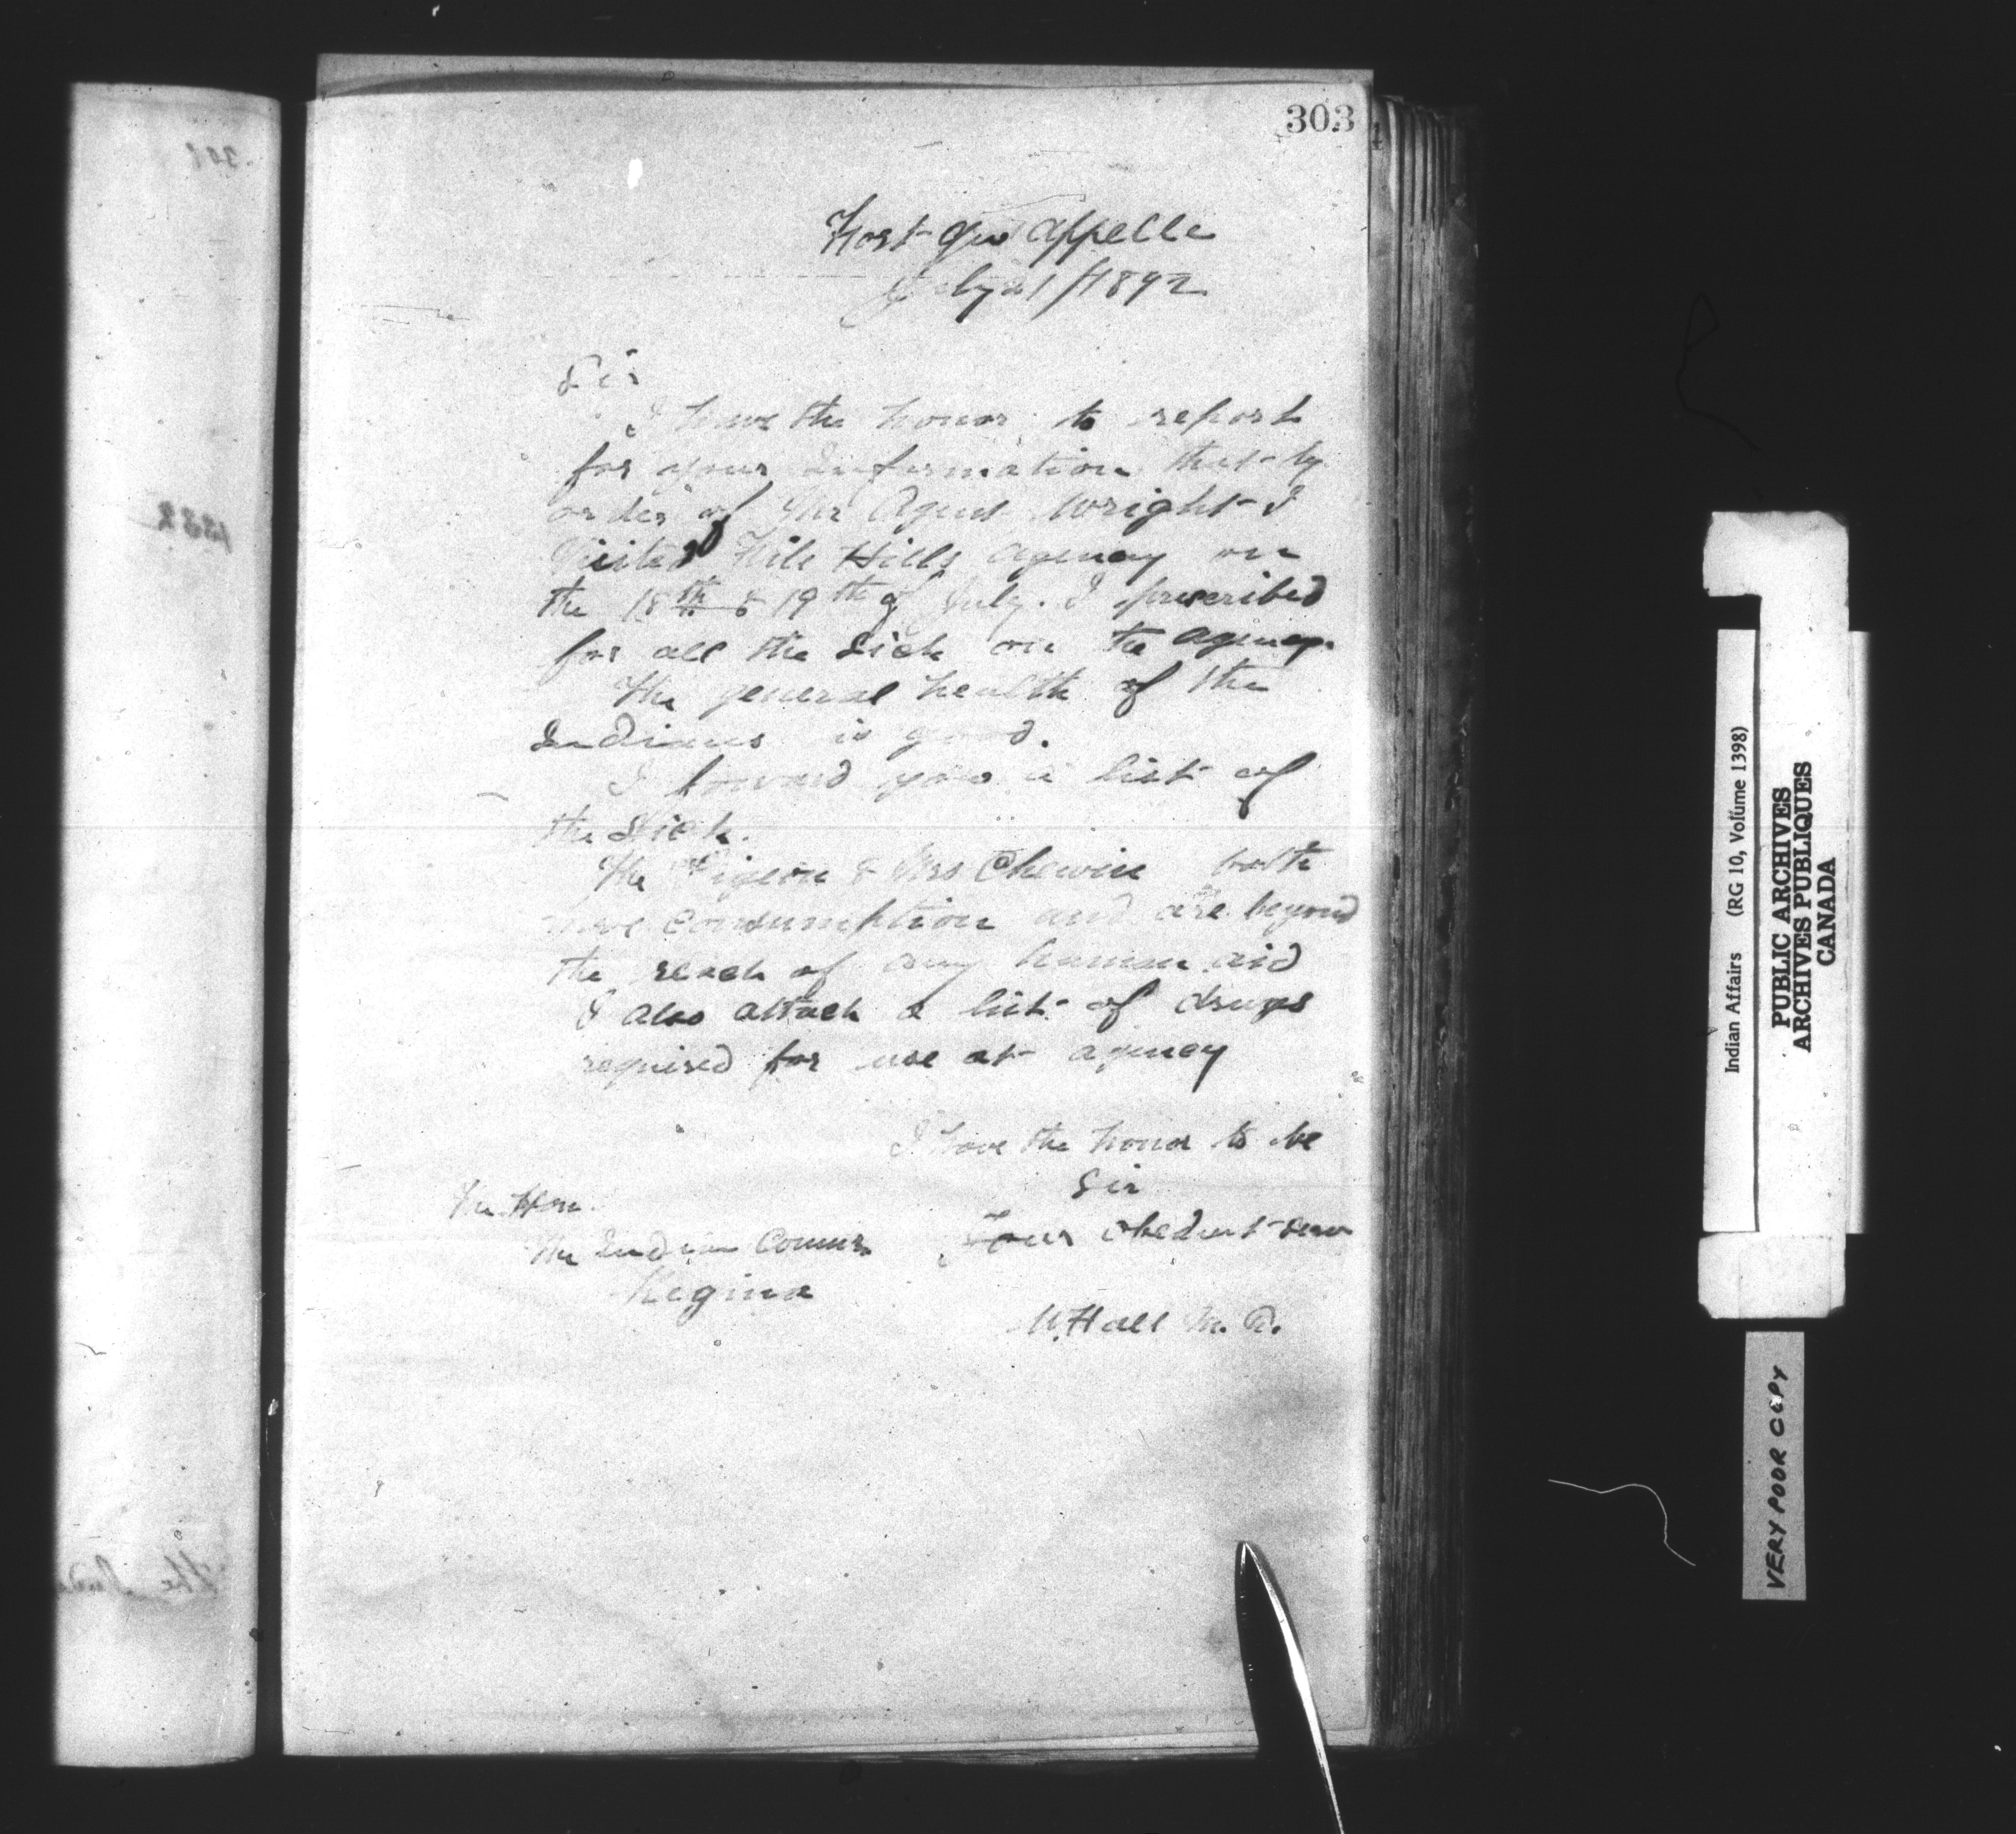 303
Fort Qu Appelle
July 21/1892
Sir
I have the honor to report
for your Information that by
order of Mr Agent Wright I
Visited File Hills Agency on
the 18th & 19th of July. I prescribed
for all the Sick on the Agency.
The general health of the
Indians is good.
I forward you a list of
the Sick.
The Pigeon & Mrs Chewin both
have consumption and are beyond
the reach of any human aid
I also attach a list of drugs
required for use at agency
I have the honor to be
Sir
Your obedient serv
The Hon.
The Indian Commr
Regina
M. Hall M. D.
Indian Affairs (RG 10, Volume 1398)
PUBLIC ARCHIVES
ARCHIVES PUBLIQUES
CANADA
VERY POOR COPY